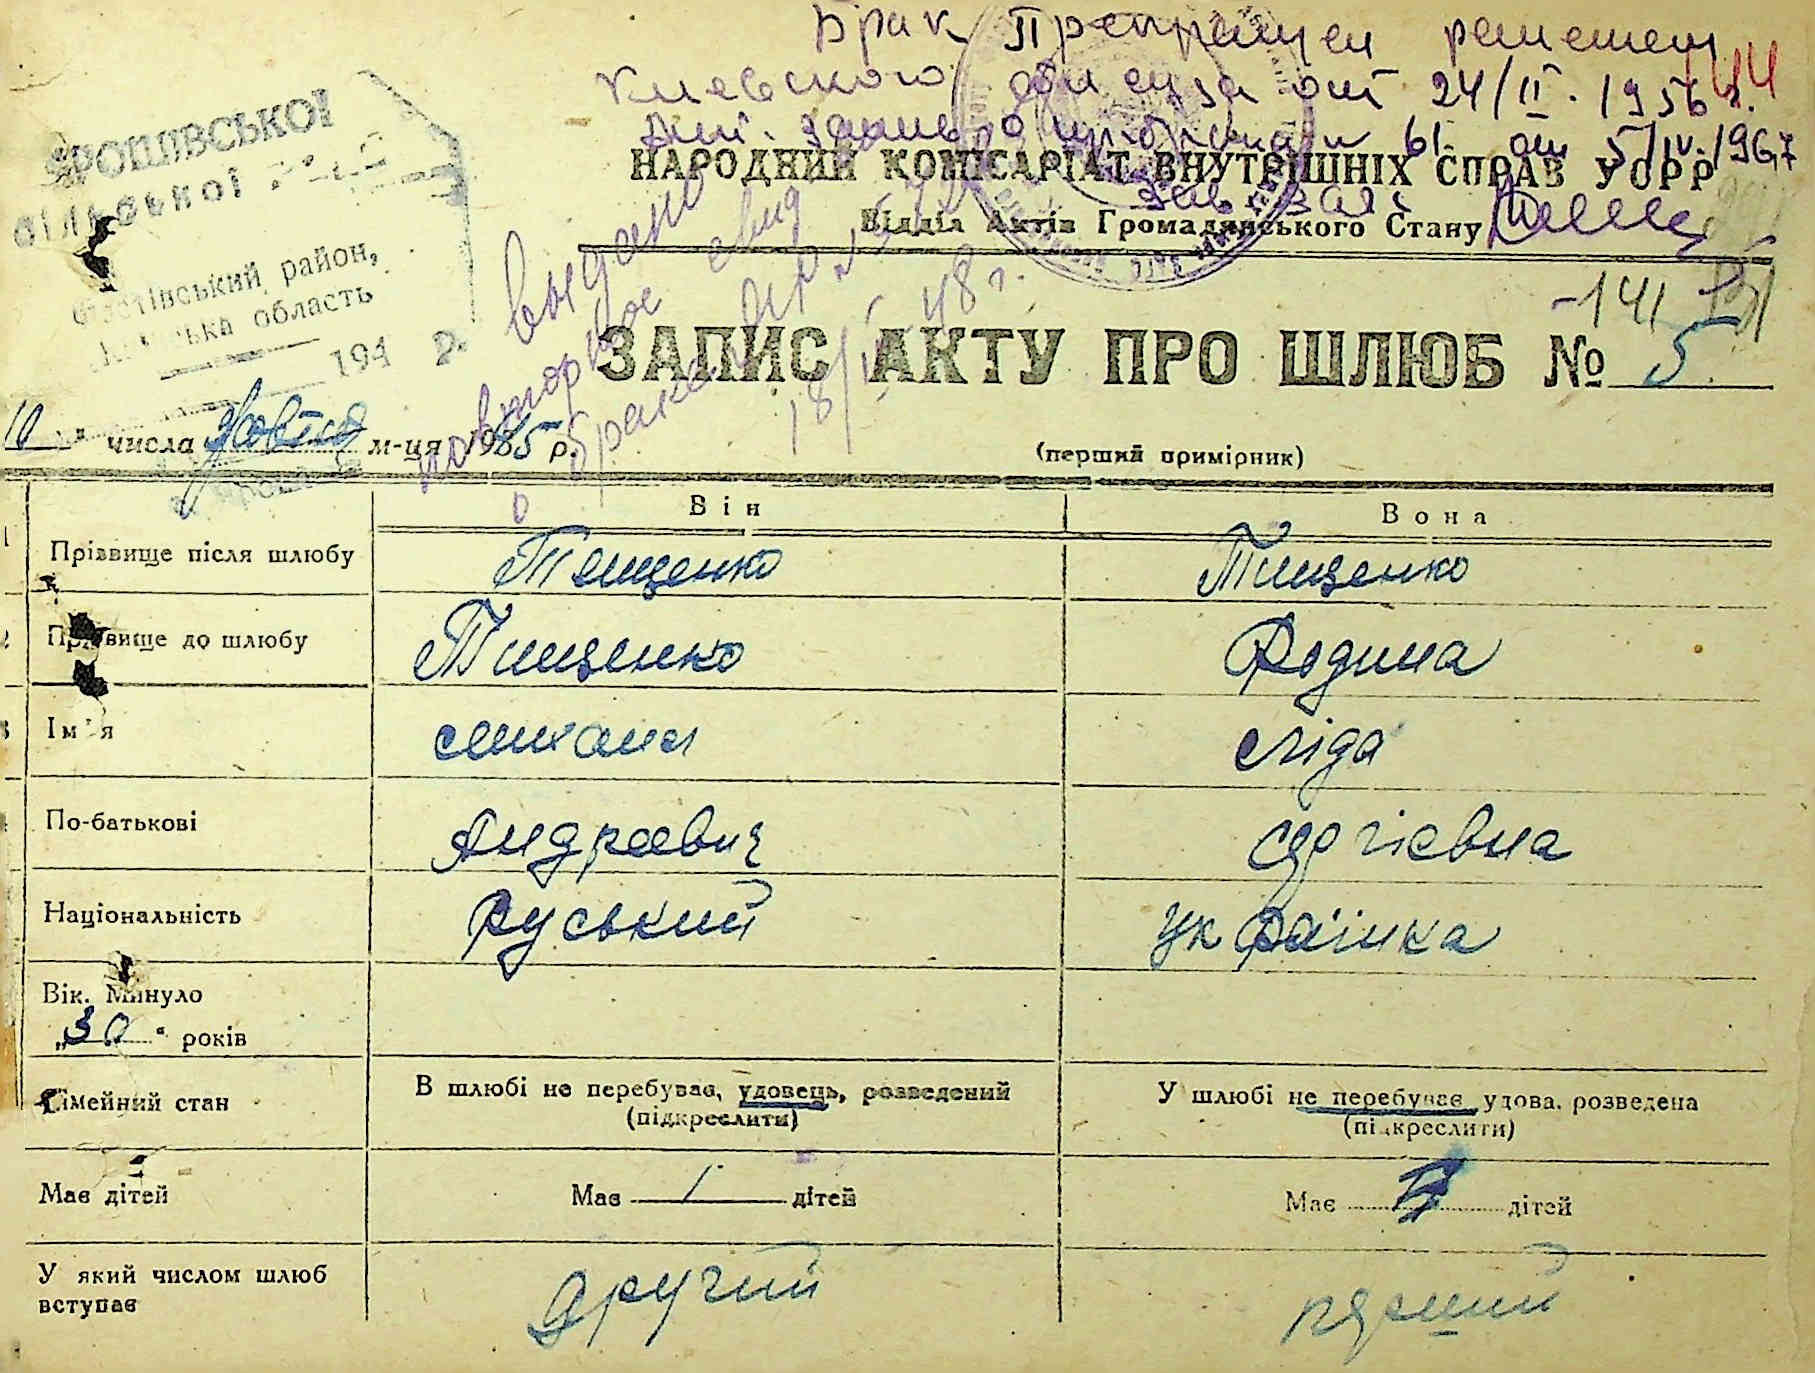 Брак Прекращен решением
Киевского обл суда от 24/II. 1956 г.
44
61 от 5/IV.1967
НАРОДНИЙ КОМІСАРІАТ ВНУТРІШНІХ СПРАВ УСРР
Відділ Актів Громадянського Стану
ЯРОШІВСЬКОЇ
сільської
Фастівський район,
область
194
-141
Выдано
повторное свид
о браке
18/ 48 г.
ЗАПИС АКТУ ПРО ШЛЮБ № 5
10 числа Жовтня м-ця 1945 р.
(перший примірник)
Він Вона
1 Прізвище після шлюбу Тещенко Тищенко
2 Прізвище до шлюбу Тищенко Родина
3 Ім'я михаил Ліда
По-батькові Андреевич Сергіевна
Національність Руський Украінка
Вік. Минуло
„30" років
Сімейний стан В шлюбі не перебуває, удовець, розведений У шлюбі не перебуває удова, розведена
(підкреслити) (підкреслити)
Має дітей Має 1 дітей Має дітей
У який числом шлюб
вступає другий перший